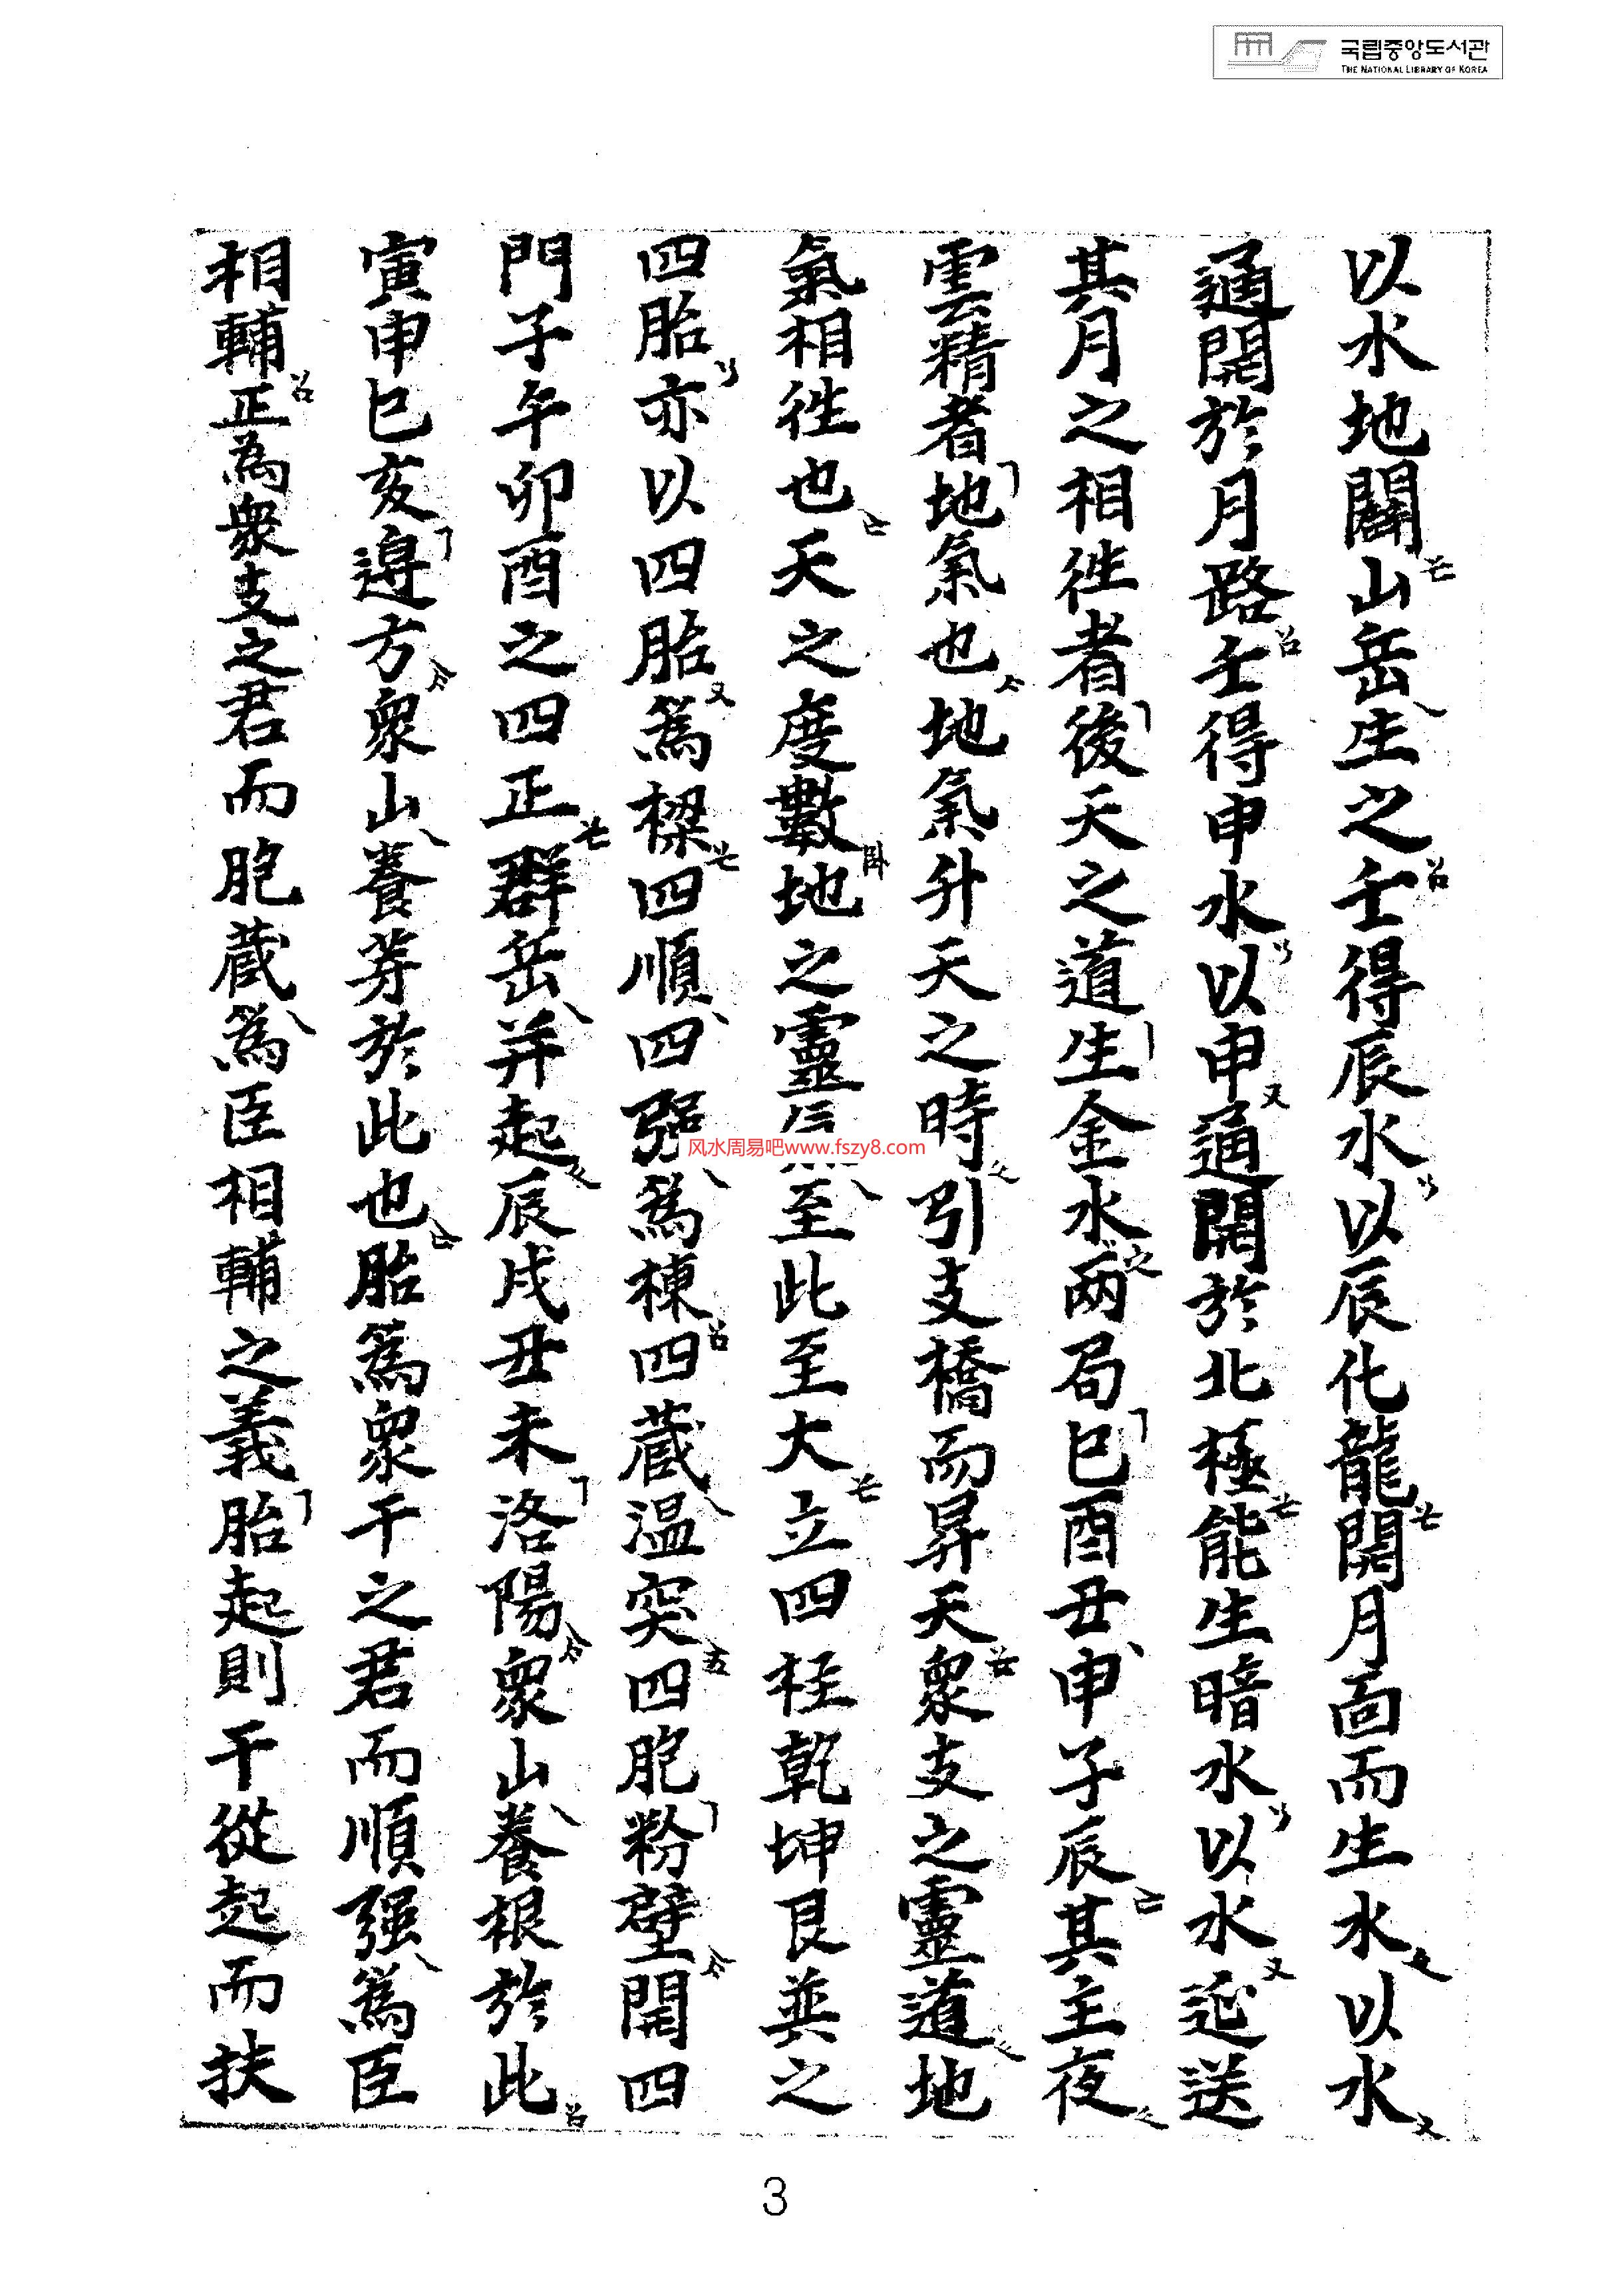 국립중앙도서관
THE NATIONAL LIBRARY OF KOREA
以水地闢山岳生之壬得辰水以辰化龍開月面而生水以水
通開於月路壬得申水以申通開於北極能生暗水以水送
其月之相徃者後天之道生金水兩局巳酉丑申子辰其主夜
雲精者地氣也地氣升天之時引支橋而昇天衆支之靈道地
氣相徃也天之度數地之靈至此至大立四柱乾坤艮巽之
四胎亦以四胎爲樑四順四强爲棟四蔵温突四胞粉壁開四
門子午卯酉之四正群岳并起辰戌丑未洛陽衆山養根於此
寅申巳亥邉方衆山養芽於此也胎爲衆干之君而順强爲臣
相輔正為衆支之君而胞蔵爲臣相輔之義胎起則干從起而扶
风水周易吧www.fszy8.com
3